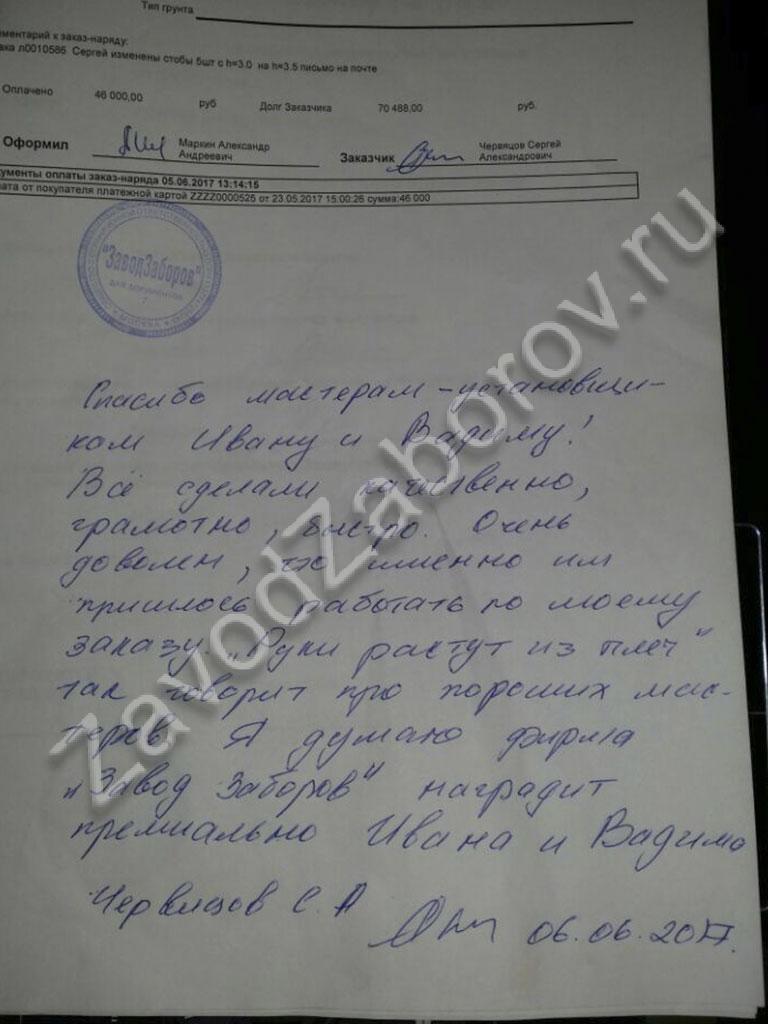 Тип грунта
ментарий к заказ-наряду:
ака л0010586 Сергей изменены стобы 5шт с h=3.0 на h=3.5 письмо на почте
Оплачено 46 000,00 руб Долг Заказчика 70 488,00 руб.
Оформил Маркин Александр Андреевич Заказчик Червяцов Сергей Александрович
кументы оплаты заказ-наряда 05.06.2017 13:14:15
лата от покупателя платежной картой ZZZZ0000525 от 23.05.2017 15:00:26 сумма:46 000
"ЗаводЗаборов"
для документов
МОСКВА
Спасибо мастерам-установщи-
кам Ивану и Вадиму!
Всё сделали качественно,
грамотно, быстро. Очень
доволен, что именно им
пришлось работать по моему
заказу. „Руки растут из плеч"
так говорит про хороших мас-
теров. Я думаю фирма
„Завод Заборов" наградит
премиально Ивана и Вадима
Червяцов С.А 06.06.2017.
ZavodZaborov.ru